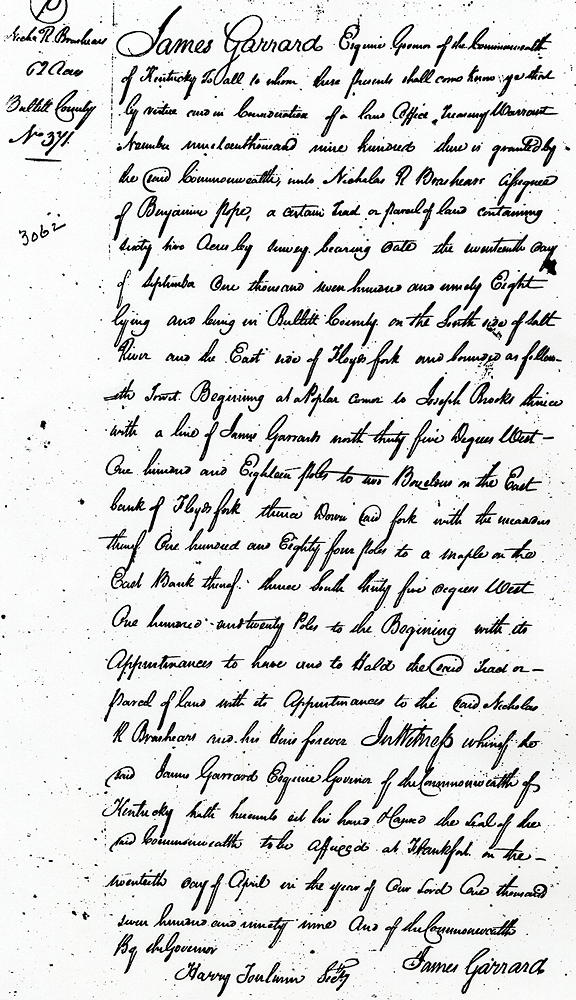 Nichs R. Brashears
62 Acres
Bullitt County
No 371.
3062
James Garrard Esquire Governor of the Commonwealth
of Kentucky To all to whom these Presents shall come know ye that
by virtue and in Consideration of a land Office Treasury Warrant
Number nine hundred there is granted by
the said Commonwealth, unto Nicholas R Brashears Assignee
of Benjamin Pope, a certain Tract or parcel of land containing
sixty two Acres by survey bearing date the seventeenth day
of September One thousand seven hundred and ninety Eight
lying and being in Bullitt County on the South side of Salt
River and the East side of Floyds fork and bounded as follow
eth Towit. Beginning at a Poplar corner to Joseph Brooks thence
with a line of James Garrards north thirty five Degrees West —
One hundred and Eighteen Poles to two on the East
bank of Floyds fork thence Down said fork with the meanders
thereof One hundred and Eighty four Poles to a maple on the
East Bank thereof. thence South thirty five degrees West
One hundred and twenty Poles to the Begining with its
Appurtinances to have and to Hold the said Tract or —
Parcel of land with its Appurtinances to the said Nicholas
R Brashears and his Heirs forever In Witness whereof the
said James Garrard Esquire Govenor of the Commonwealth of
Kentucky hath hereunto set his hand & caused the Seal of the
said Commonwealth to be affixed at Frankfort on the —
twentieth day of April in the year of Our Lord One thousand
seven hundred and ninety nine And of the Commonwealth
By the Governor
Harry Toulmin Secty James Garrard